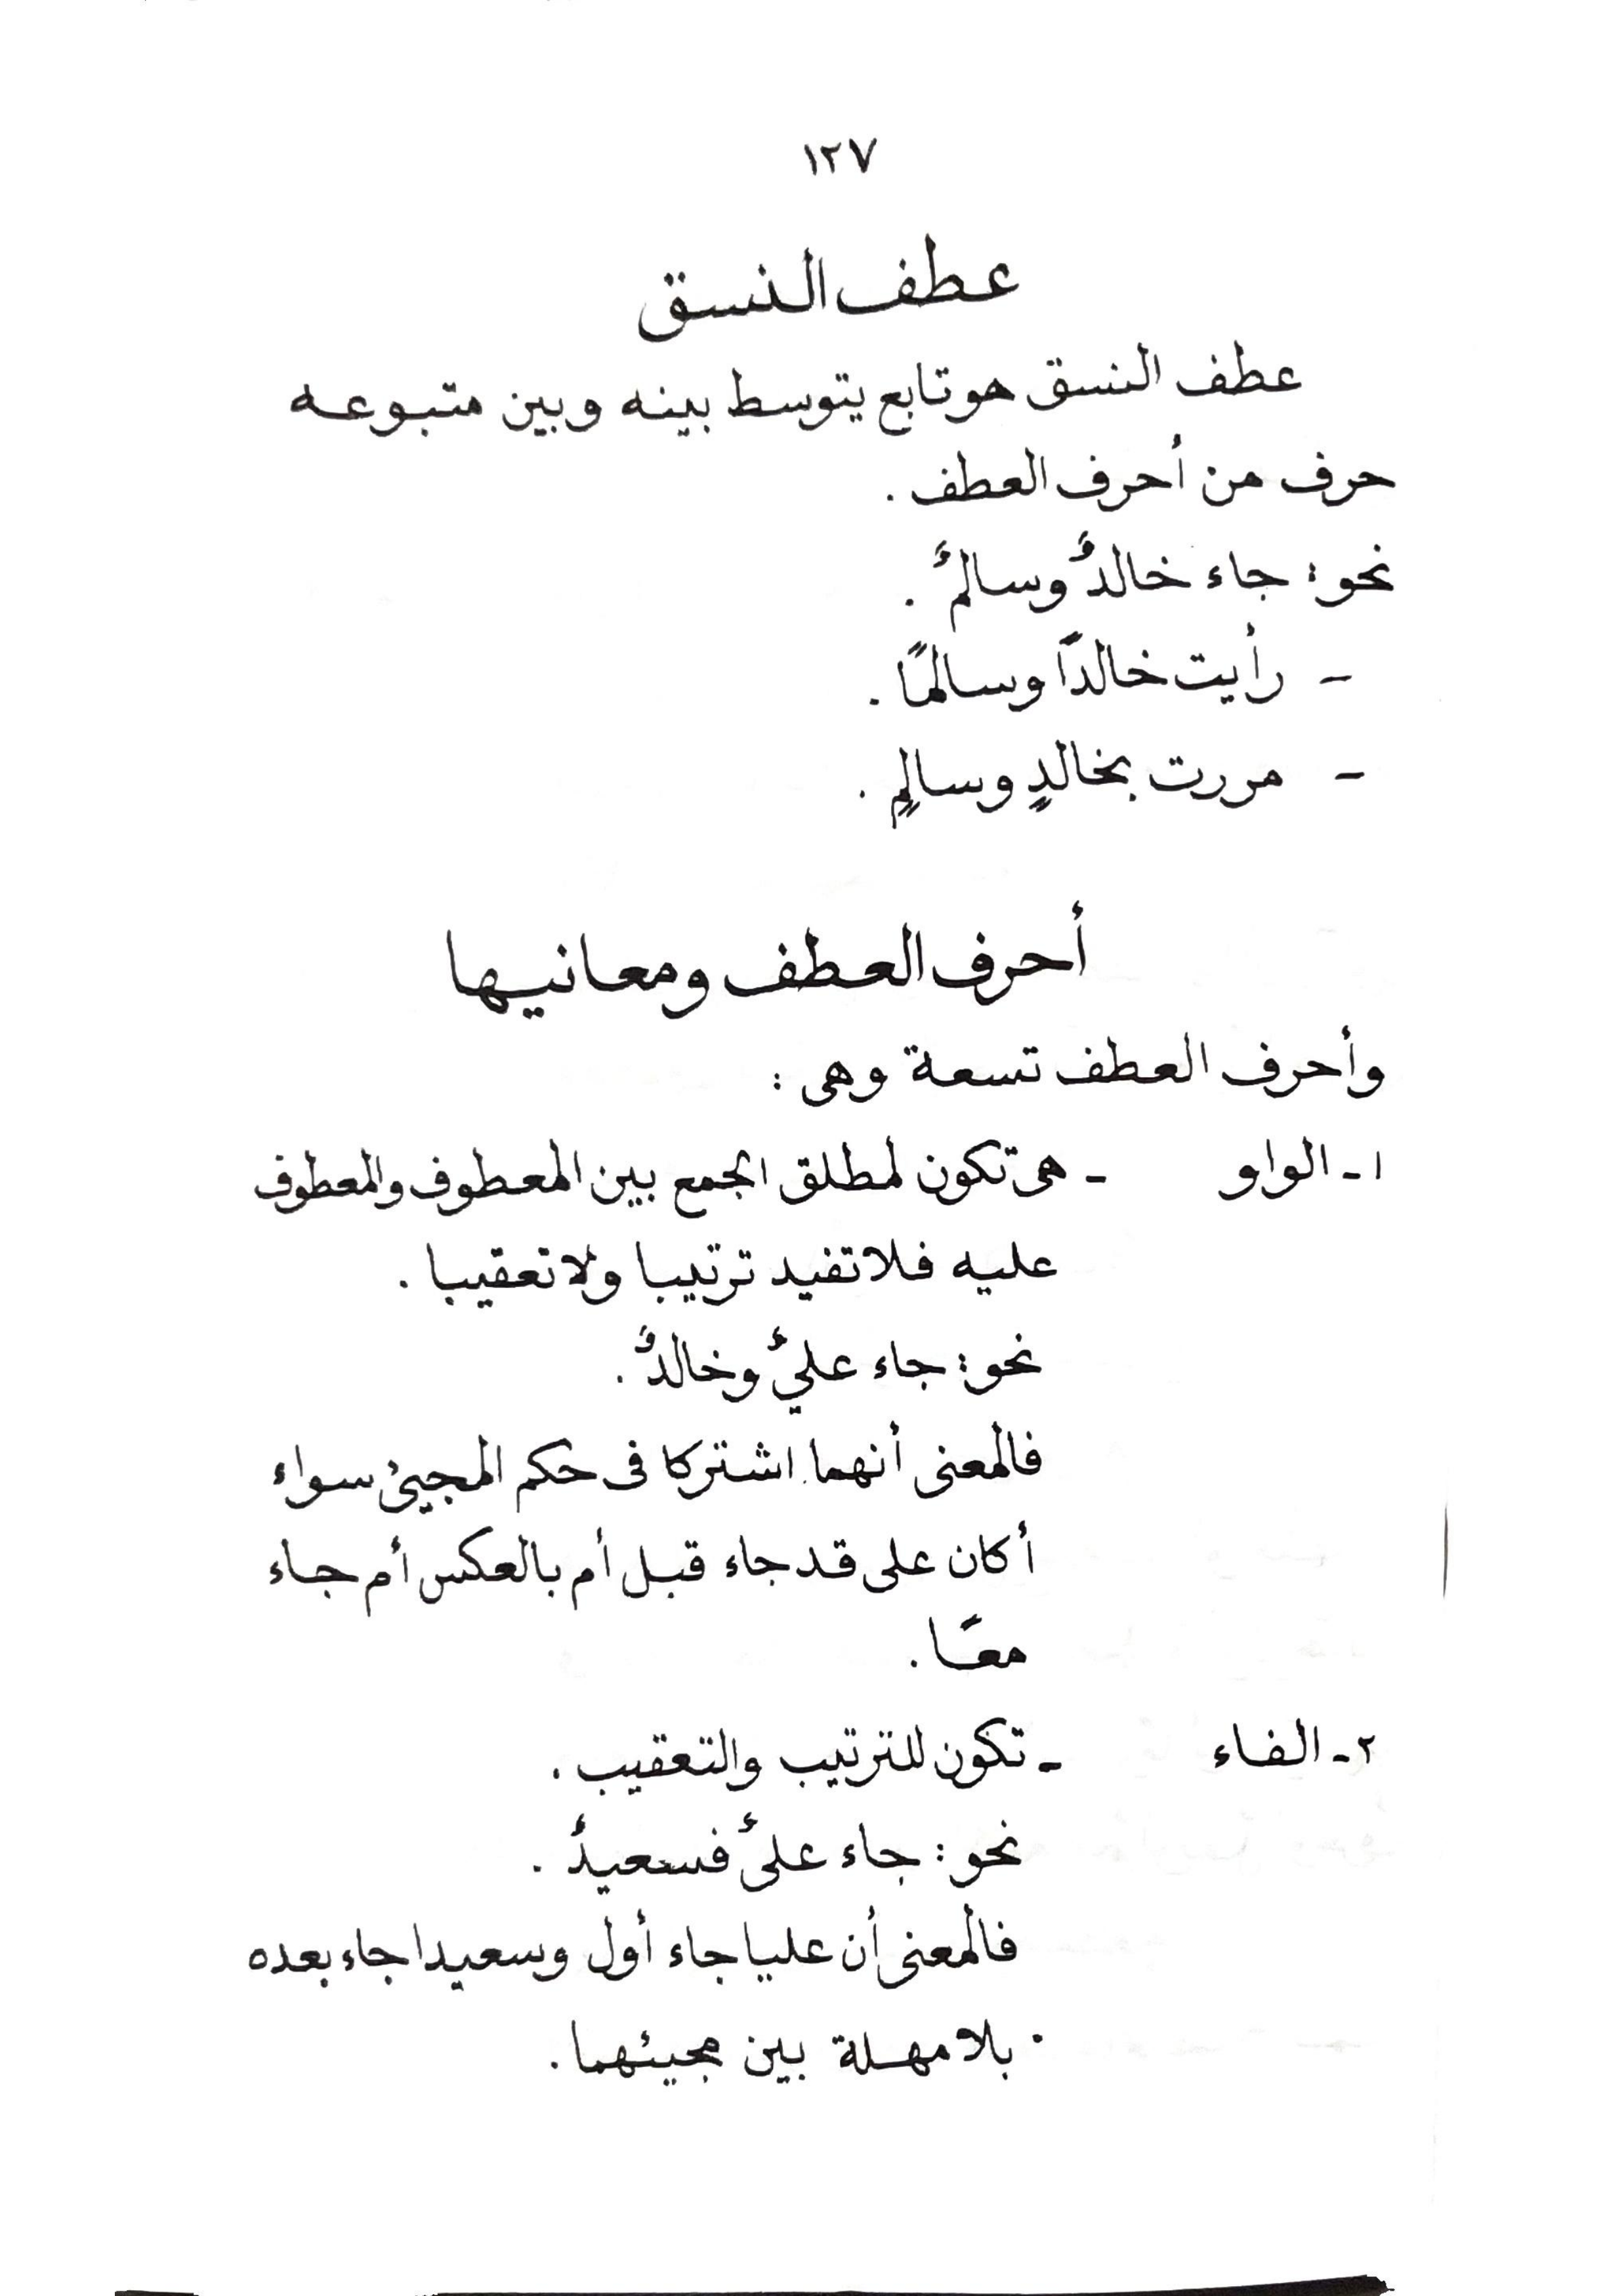 ١٢٧
عطف النسق
عطف النسق هو تابع يتوسط بينه وبين متبوعه
حرف من أحرف العطف .
نحو : جاء خالدٌ وسالمٌ .
- رأيت خالدًا وسالمًا .
- مررت بخالدٍ وسالمٍ .
أحرف العطف ومعانيها
وأحرف العطف تسعة وهى :
١ - الواو - هى تكون لمطلق الجمع بين المعطوف والمعطوف
عليه فلا تفيد ترتيبا ولا تعقيبا .
نحو : جاء عليٌ وخالدٌ .
فالمعنى أنهما اشتركا فى حكم المجيئ سواء
أكان على قد جاء قبل أم بالعكس أم جاء
معًا .
٢ - الفاء - تكون للترتيب والتعقيب .
نحو : جاء علىٌ فسعيدٌ .
فالمعنى أن عليا جاء أول وسعيدا جاء بعده
بلا مهلة بين مجيئهما .